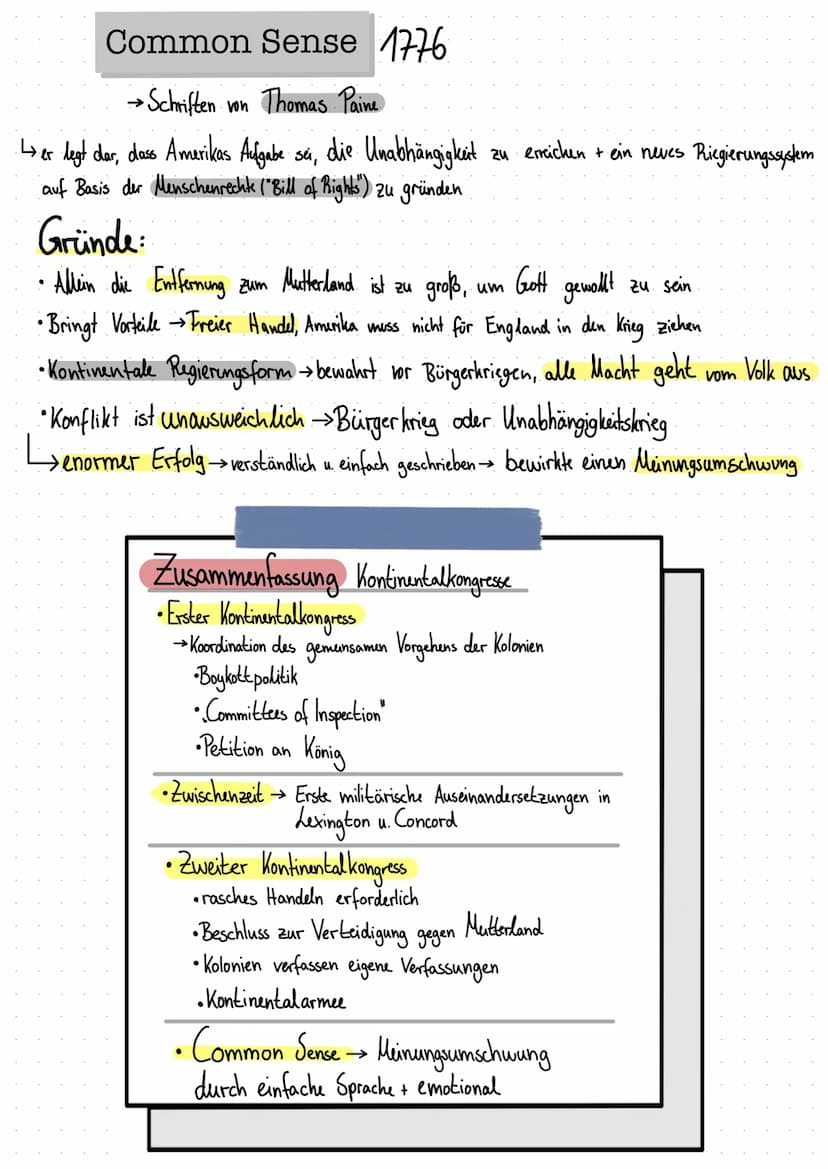 Common Sense 1776
→ Schriften von Thomas Paine
↳ er legt dar, dass Amerikas Aufgabe sei, die Unabhängigkeit zu erreichen + ein neues Riegierungssystem
auf Basis der Menschenrechte ("Bill of Rights") zu gründen
Gründe:
• Allein die Entfernung zum Mutterland ist zu groß, um Gott gewollt zu sein
• Bringt Vorteile → Freier Handel, Amerika muss nicht für England in den Krieg ziehen
• Kontinentale Regierungsform → bewahrt vor Bürgerkriegen, alle Macht geht vom Volk aus
• Konflikt ist unausweichlich → Bürgerkrieg oder Unabhängigkeitskrieg
↳ enormer Erfolg → verständlich u. einfach geschrieben → bewirkte einen Meinungsumschwung
Zusammenfassung Kontinentalkongresse
• Erster Kontinentalkongress
→ Koordination des gemeinsamen Vorgehens der Kolonien
• Boykottpolitik
• „Committees of Inspection"
• Petition an König
• Zwischenzeit → Erste militärische Auseinandersetzungen in
Lexington u. Concord
• Zweiter Kontinentalkongress
• rasches Handeln erforderlich
• Beschluss zur Verteidigung gegen Mutterland
• Kolonien verfassen eigene Verfassungen
• Kontinentalarmee
• Common Sense → Meinungsumschwung
durch einfache Sprache + emotional